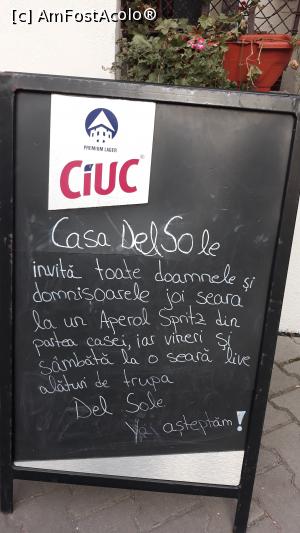 [c] AmFostAcolo®
PREMIUM LAGER
CIUC®
Casa Del Sole
invită toate doamnele și
domnișoarele joi seara
la un Aperol Spritz din
partea casei, iar vineri și
sâmbătă la o seară live
alături de trupa
Del Sole
Vă așteptăm!